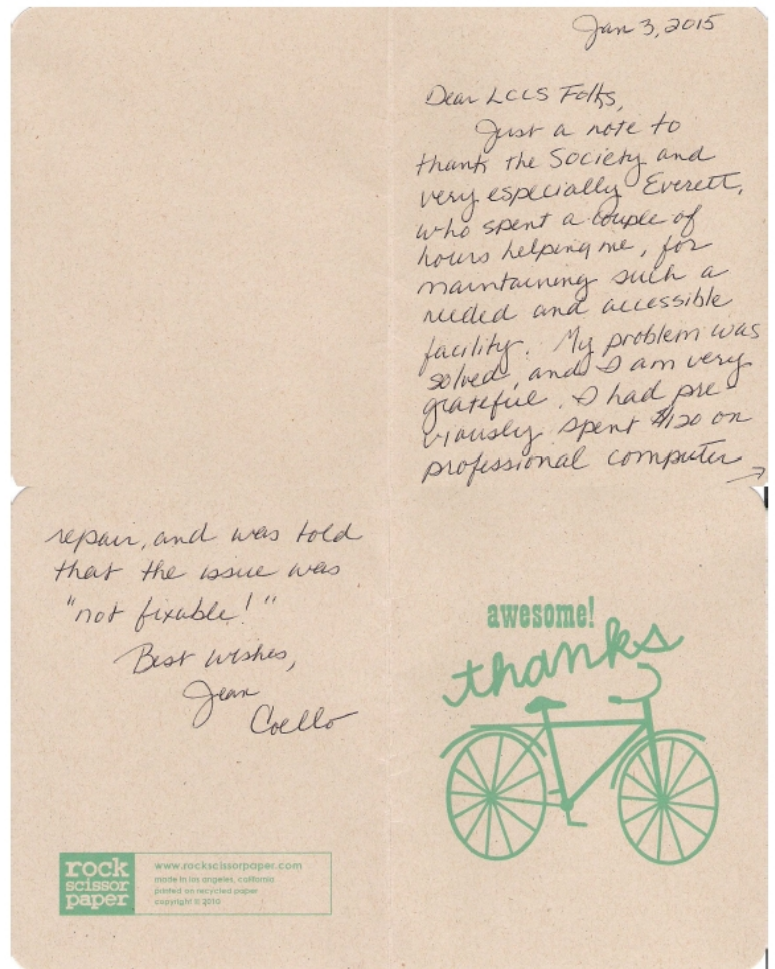 Jan 3, 2015
Dear LCCS Folks,
Just a note to
thank the Society and
very especially Everett,
who spent a couple of
hours helping me, for
maintaining such a
needed and accessible
facility. My problem was
solved, and I am very
grateful. I had pre-
viously spent $120 on
professional computer
→
repair, and was told
that the issue was
"not fixable!"
Best wishes,
Jean
Coello
awesome!
thanks
rock
scissor
paper
www.rockscissorpaper.com
made in los angeles, california
printed on recycled paper
copyright © 2010